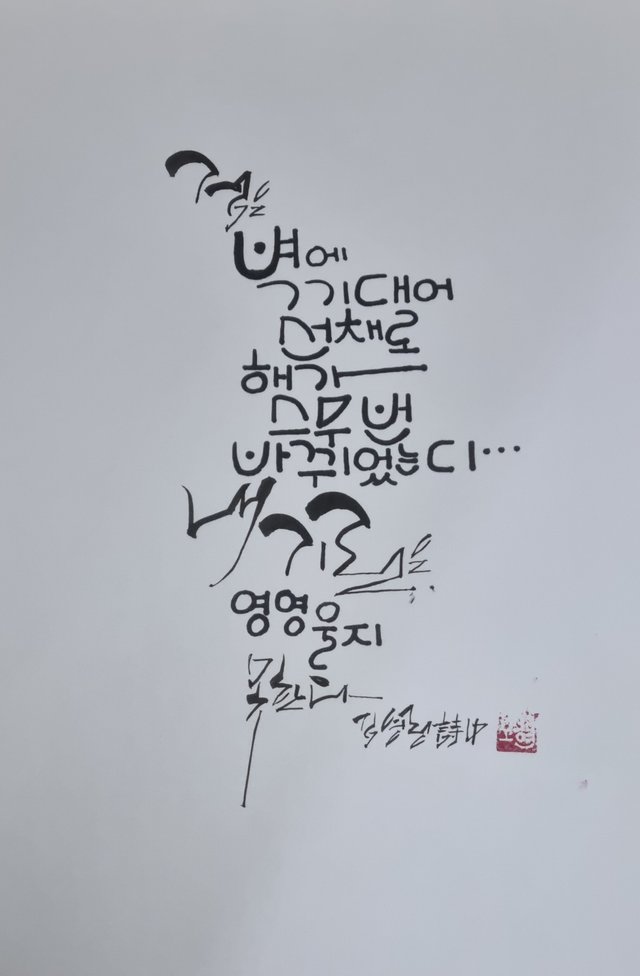 검은
벽에
기대어
선채로
해가
스무번
바뀌었는디...
내 기린은
영영 울지
못한다
김영랑 詩 中